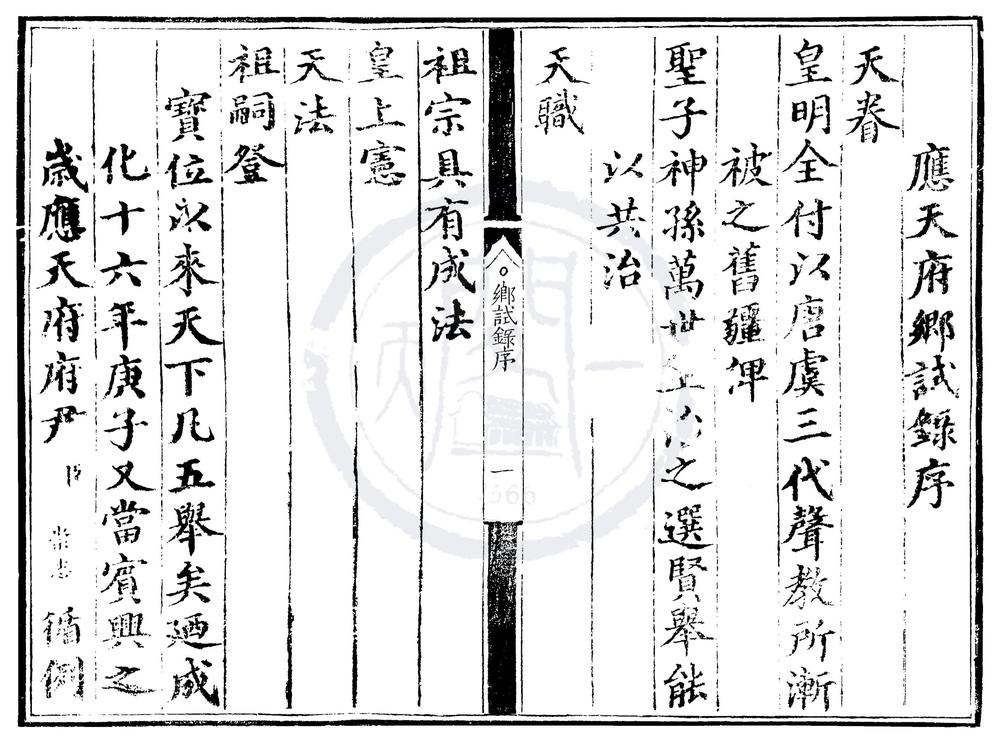 應天府鄉試錄序
天眷
皇明全付以唐虞三代聲教所漸
被之舊疆俾
聖子神孫萬世主治之選賢舉能
以共治
天職
鄉試錄序
一
祖宗具有成法
皇上憲
天法
祖嗣登
寶位以來天下凡五舉矣廼成
化十六年庚子又當賓興之
歲應天府府尹臣 志循例